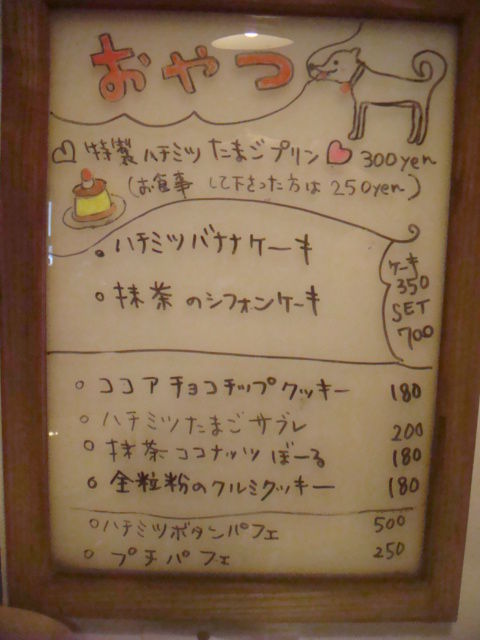 おやつ
特製ハチミツたまごプリン 300yen
(お食事して下さった方は 250yen)
ハチミツバナナケーキ
抹茶のシフォンケーキ
ケーキ
350
SET
700
ココアチョコチップクッキー 180
ハチミツたまごサブレ 200
抹茶ココナッツぼーる 180
全粒粉のクルミクッキー 180
ハチミツボタンパフェ 500
プチパフェ 250